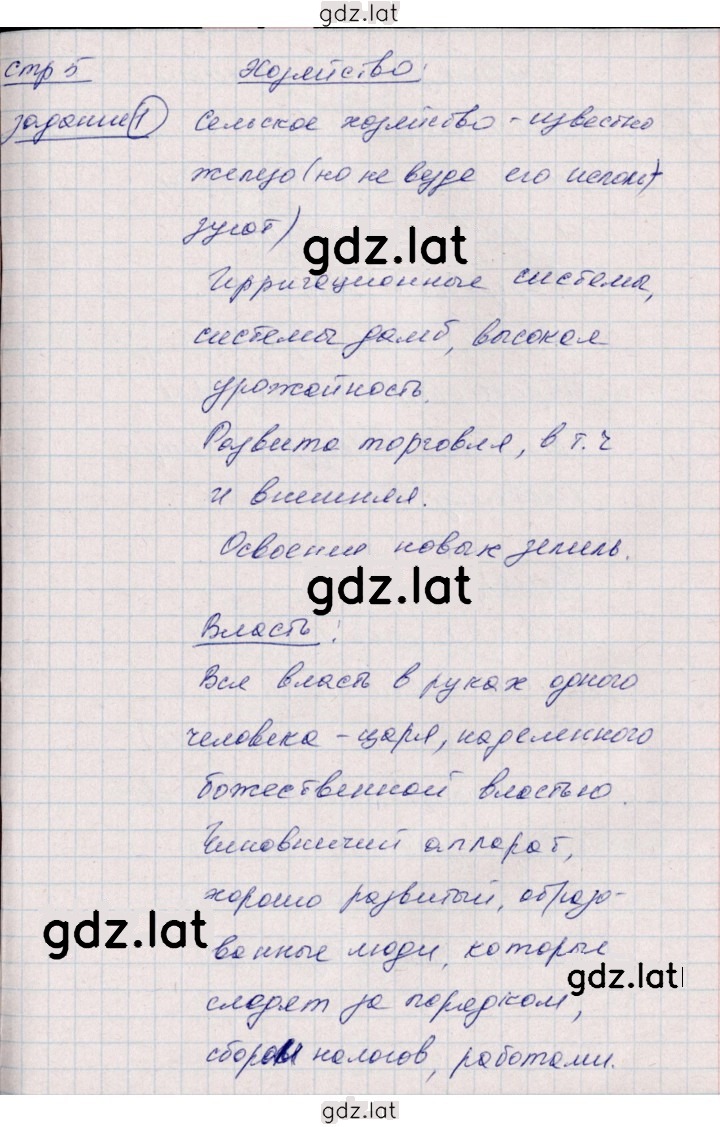 gdz.lat
стр 5 Хозяйство:
задание 1 Сельское хозяйство - известно
железо (но не везде его исполь
зуют)
gdz.lat
Ирригационные система,
системы дамб, высокая
урожайность.
Развита торговля, в т.ч
и внешняя.
Освоение новых земель.
gdz.lat
Власть:
Вся власть в руках одного
человека - царя, наделенного
божественной властью
Чиновничий аппарат,
хорошо развитый, образо-
gdz.lat
ванные люди, которые
gdz.lat
следят за порядком,
сбором налогов, работами.
gdz.lat